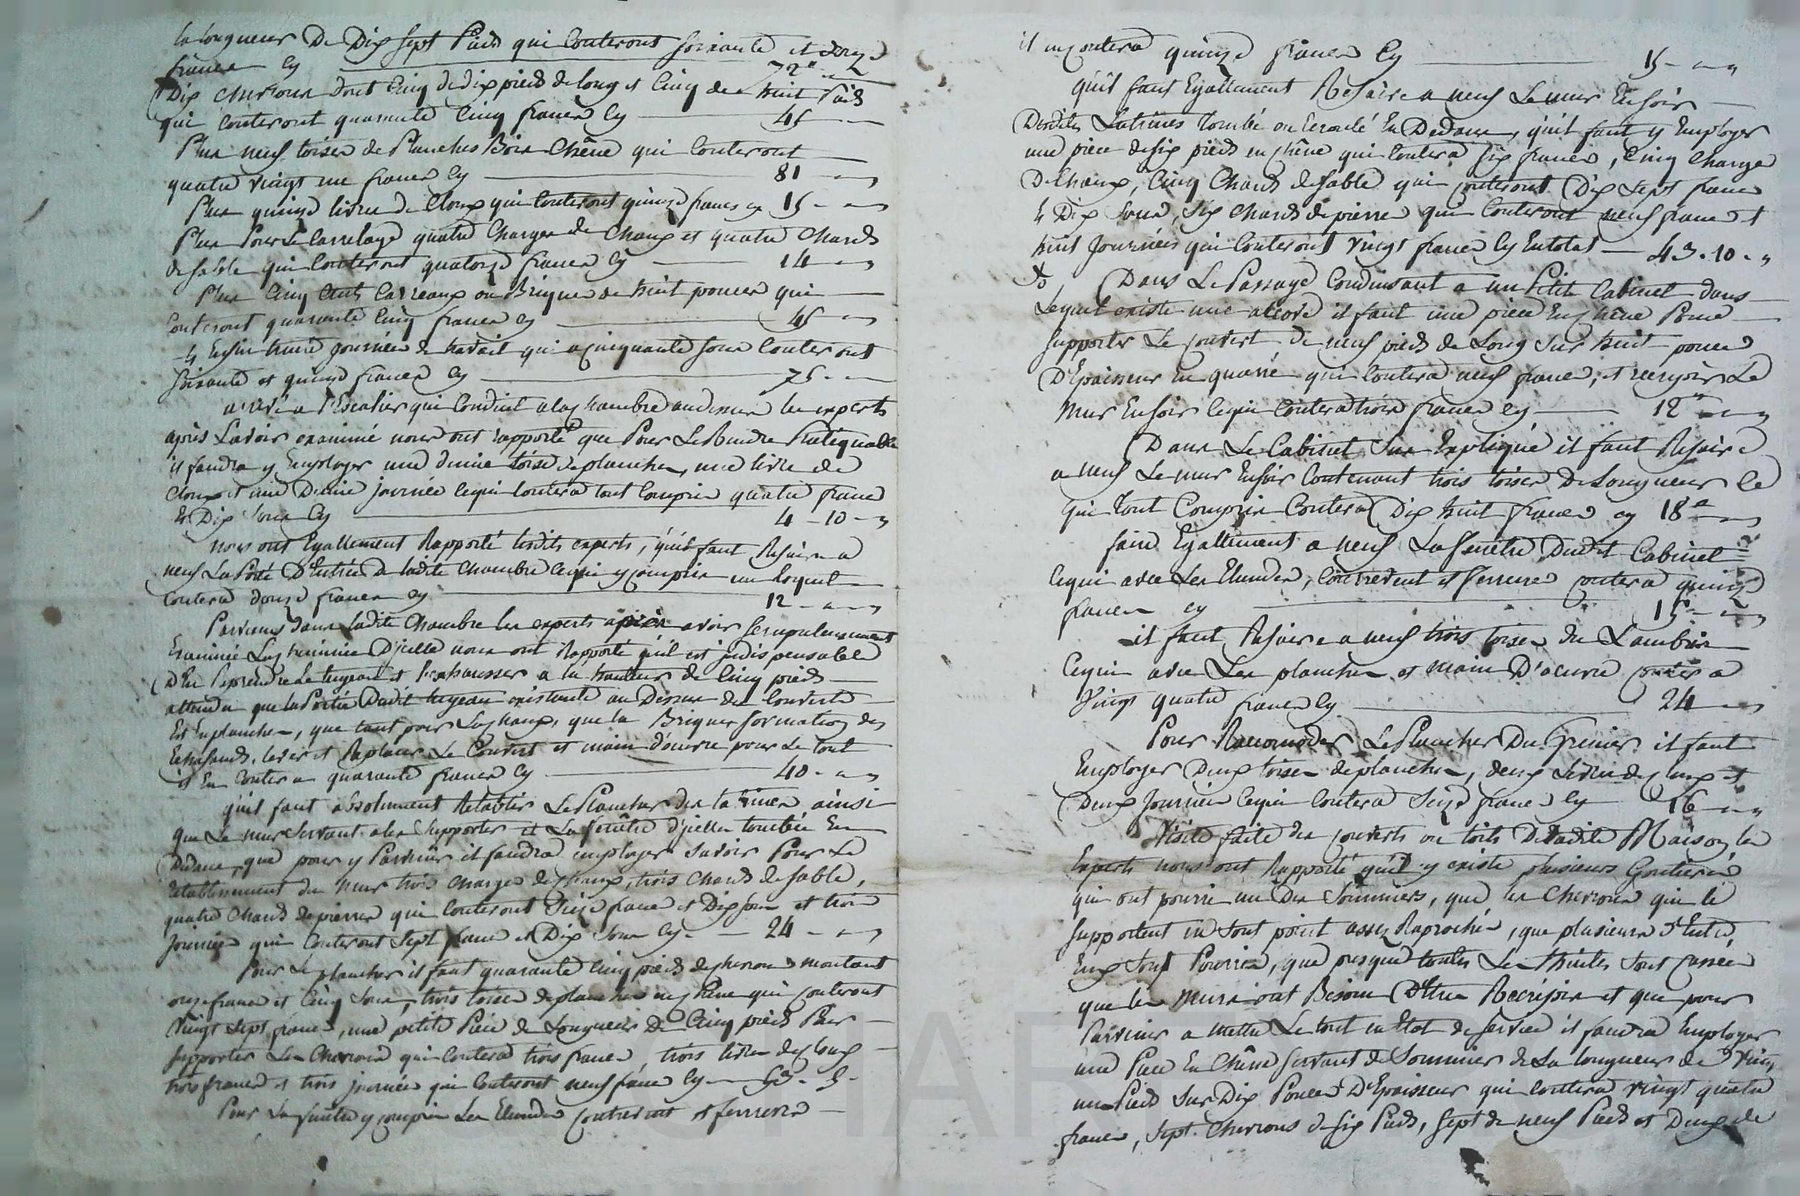 la longueur De Dix sept Pieds qui Couteront soixante et douze
francs Cy 72 " "
Dix chevrons dont Cinq de dix pieds de long et Cinq de huit Pieds
qui Couteront quarante Cinq francs Cy 45 " "
Plus neuf toises de Planches Bois Chêne qui Couteront
quatre vingt un francs Cy 81 " "
Plus quinze livres de Cloux qui Couteront quinze francs cy 15 " "
Plus Pour Le Carrelage quatre Charges de Chaux et quatre Chards
de sable qui Couteront quatorze francs Cy 14 " "
Plus Cinq Cents Carreaux ou Briques de huit pouces qui
Couteront quarante Cinq francs cy 45 " "
Et Enfin trente journées de travail qui a cinquante sous Couteront
soixante et quinze francs cy 75 " "
arrivé a l'Escalier qui Conduit a la chambre au dessus les experts
après L'avoir examiné nous ont rapporté que Pour Le Rendre Pratiquable
il faudra y Employer une demie toise de planches, une livre de
Cloux et une Demie journée ce qui Coutera tout Compris quatre francs
et Dix sous Cy 4 - 10 - "
nous ont Egallement Rapporté lesdits experts, qu'il faut Refaire a
neuf La Porte D'Entrée de ladite Chambre ce qui y compris un Loquet
Coutera douze francs cy 12 " "
Parvenus dans ladite Chambre les experts après avoir scrupuleusement
Examinée La cheminée D'icelle nous ont Rapporté qu'il est indispensable
D'En Reprendre Le tuyeau et Rehausser a la hauteur de Cinq pieds
attendu que la Portée Dudit tuyeau existante au Dessus du Couvert
Est En planches, que tant pour La chaux, que la Brique formation des
Echafauds, lever et Replacer Le Couvert et main d'œuvre pour Le tout
il En Coutera quarante francs Cy 40 " "
qu'il faut absolument Rétablir Le Plancher des latrines ainsi
que Le mur servant a les supporter et La fenêtre d'icelles tombée En
Dedans, que pour y Parvenir il faudra employer savoir Pour Le
retablissement du mur trois charges de chaux, trois chards de sable,
quatre chards de pierres qui Couteront seize francs et Dix sous et trois
journées qui Couteront sept francs et Dix sous Cy 24 " "
Pour Le plancher il faut quarante Cinq pieds de chevrons montant
onze francs et Cinq sous, trois toises de planches en chêne qui Couteront
vingt sept francs, une petite Pièce de Longueur de Cinq pieds Pour
supporter Les Chevrons qui Coutera trois francs, trois livres de cloux
trois francs et trois journées qui Couteront neuf francs Cy 53 - 5 -
Pour La fenêtre y compris Les Etendes Contrevent et ferrures
il en coutera quinze francs Cy 15 " "
qu'il faut Egallement Refaire a neuf Le mur Enfoir
Desdites Latrines tombé ou Ecroulé En Dedans, qu'il faut y Employer
une pièce de six pieds en chêne qui Coutera six francs, Cinq Charges
De Chaux, Cinq Chards de sable qui Couteront Dix sept francs
et Dix sous, six chards de pierres qui Couteront neuf francs et
huit journées qui Couteront vingt francs Cy En total 43 - 10 - "
Dans Le Passage Conduisant a un Petit Cabinet dans
Lequel existe une alcove il faut une pièce En chêne Pour
supporter Le couvert de neuf pieds de Long sur huit pouces
D'Epaisseur en quarré qui Coutera neuf francs, et recrepir Le
mur Enfoir ce qui Coutera trois francs cy 12 " "
Dans Le Cabinet sus Expliqué il faut Refaire
a neuf Le mur Enfoir Contenant trois toises De Longueur Ce
qui tout Compris Coutera Dix huit francs cy 18 " "
faire Egallement a neuf La fenêtre Dudit Cabinet
ce qui avec Les Etendes, Contrevent et ferrures coutera quinze
francs cy 15 " "
il faut Refaire a neuf trois toises du Lambris
Ce qui avec Les planches et main D'œuvre coutera
vingt quatre francs Cy 24 " "
Pour Raccomoder Le Plancher Du Grenier il faut
Employer Deux toises de planches, deux Livres de cloux et
Deux journées ce qui Coutera seize francs Cy 16 " "
Visite faite des couverts ou toits De ladite Maison les
Experts nous ont Rapporté qu'il y existe plusieurs Goutières
qui ont pourri un Des Sommiers, que les Chevrons qui le
supportent ne sont point assez Raprochés, que plusieurs d'Entre
Eux sont Pourris, que presque toutes Les thuiles sont cassées
que les murs ont Besoin D'être Recrépir et que pour
Parvenir a mettre Le tout en Etat de service il faudra Employer
une Pièce En Chêne servant de Sommier de La longueur de vingt
un Pieds sur Dix Pouces D'Epaisseur qui Coutera vingt quatre
francs, sept Chevrons de six Pieds, sept de neuf Pieds et Deux de